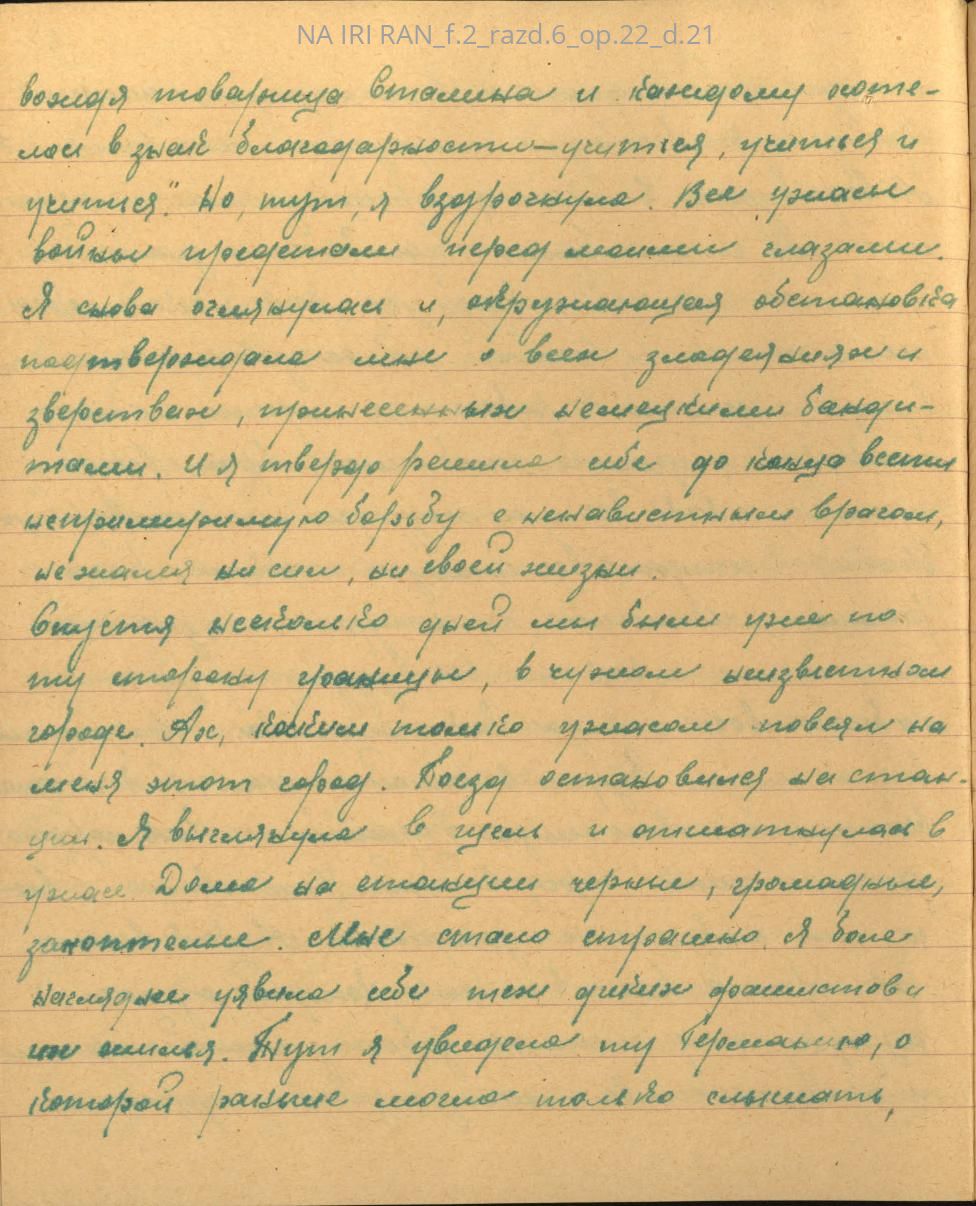 NA IRI RAN_f.2_razd.6_op.22_d.21
вождя товарища Сталина и каждому хоте-
лось в знак благодарности – учиться, учиться и
учиться". Но, тут, я вздрогнула. Все ужасы
войны предстали перед моими глазами.
Я снова оглянулась и, окружающая обстановка
подтверждала мне о всех злодеяниях и
зверствах, принесенных немецкими банди-
тами. И я твердо решила себе до конца вести
непримиримую борьбу с ненавистным врагом,
не жалея ни сил, ни своей жизни.
Спустя несколько дней мы были уже по
ту сторону границы, в чужом неизвестном
городе. Ах, каким только ужасом повеял на
меня этот город. Поезд остановился на стан-
ции. Я выглянула в щель и отшатнулась в
ужасе. Дома на станции черные, громадные,
закоптелые. Мне стало страшно. Я более
нагляднее уявила себе тех диких фашистов и
их жилья. Тут я увидела ту Германию, о
которой раньше могла только слышать,